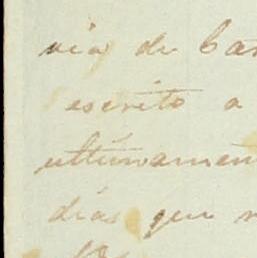 via de Car
escrito a
ultimamen
dias que n